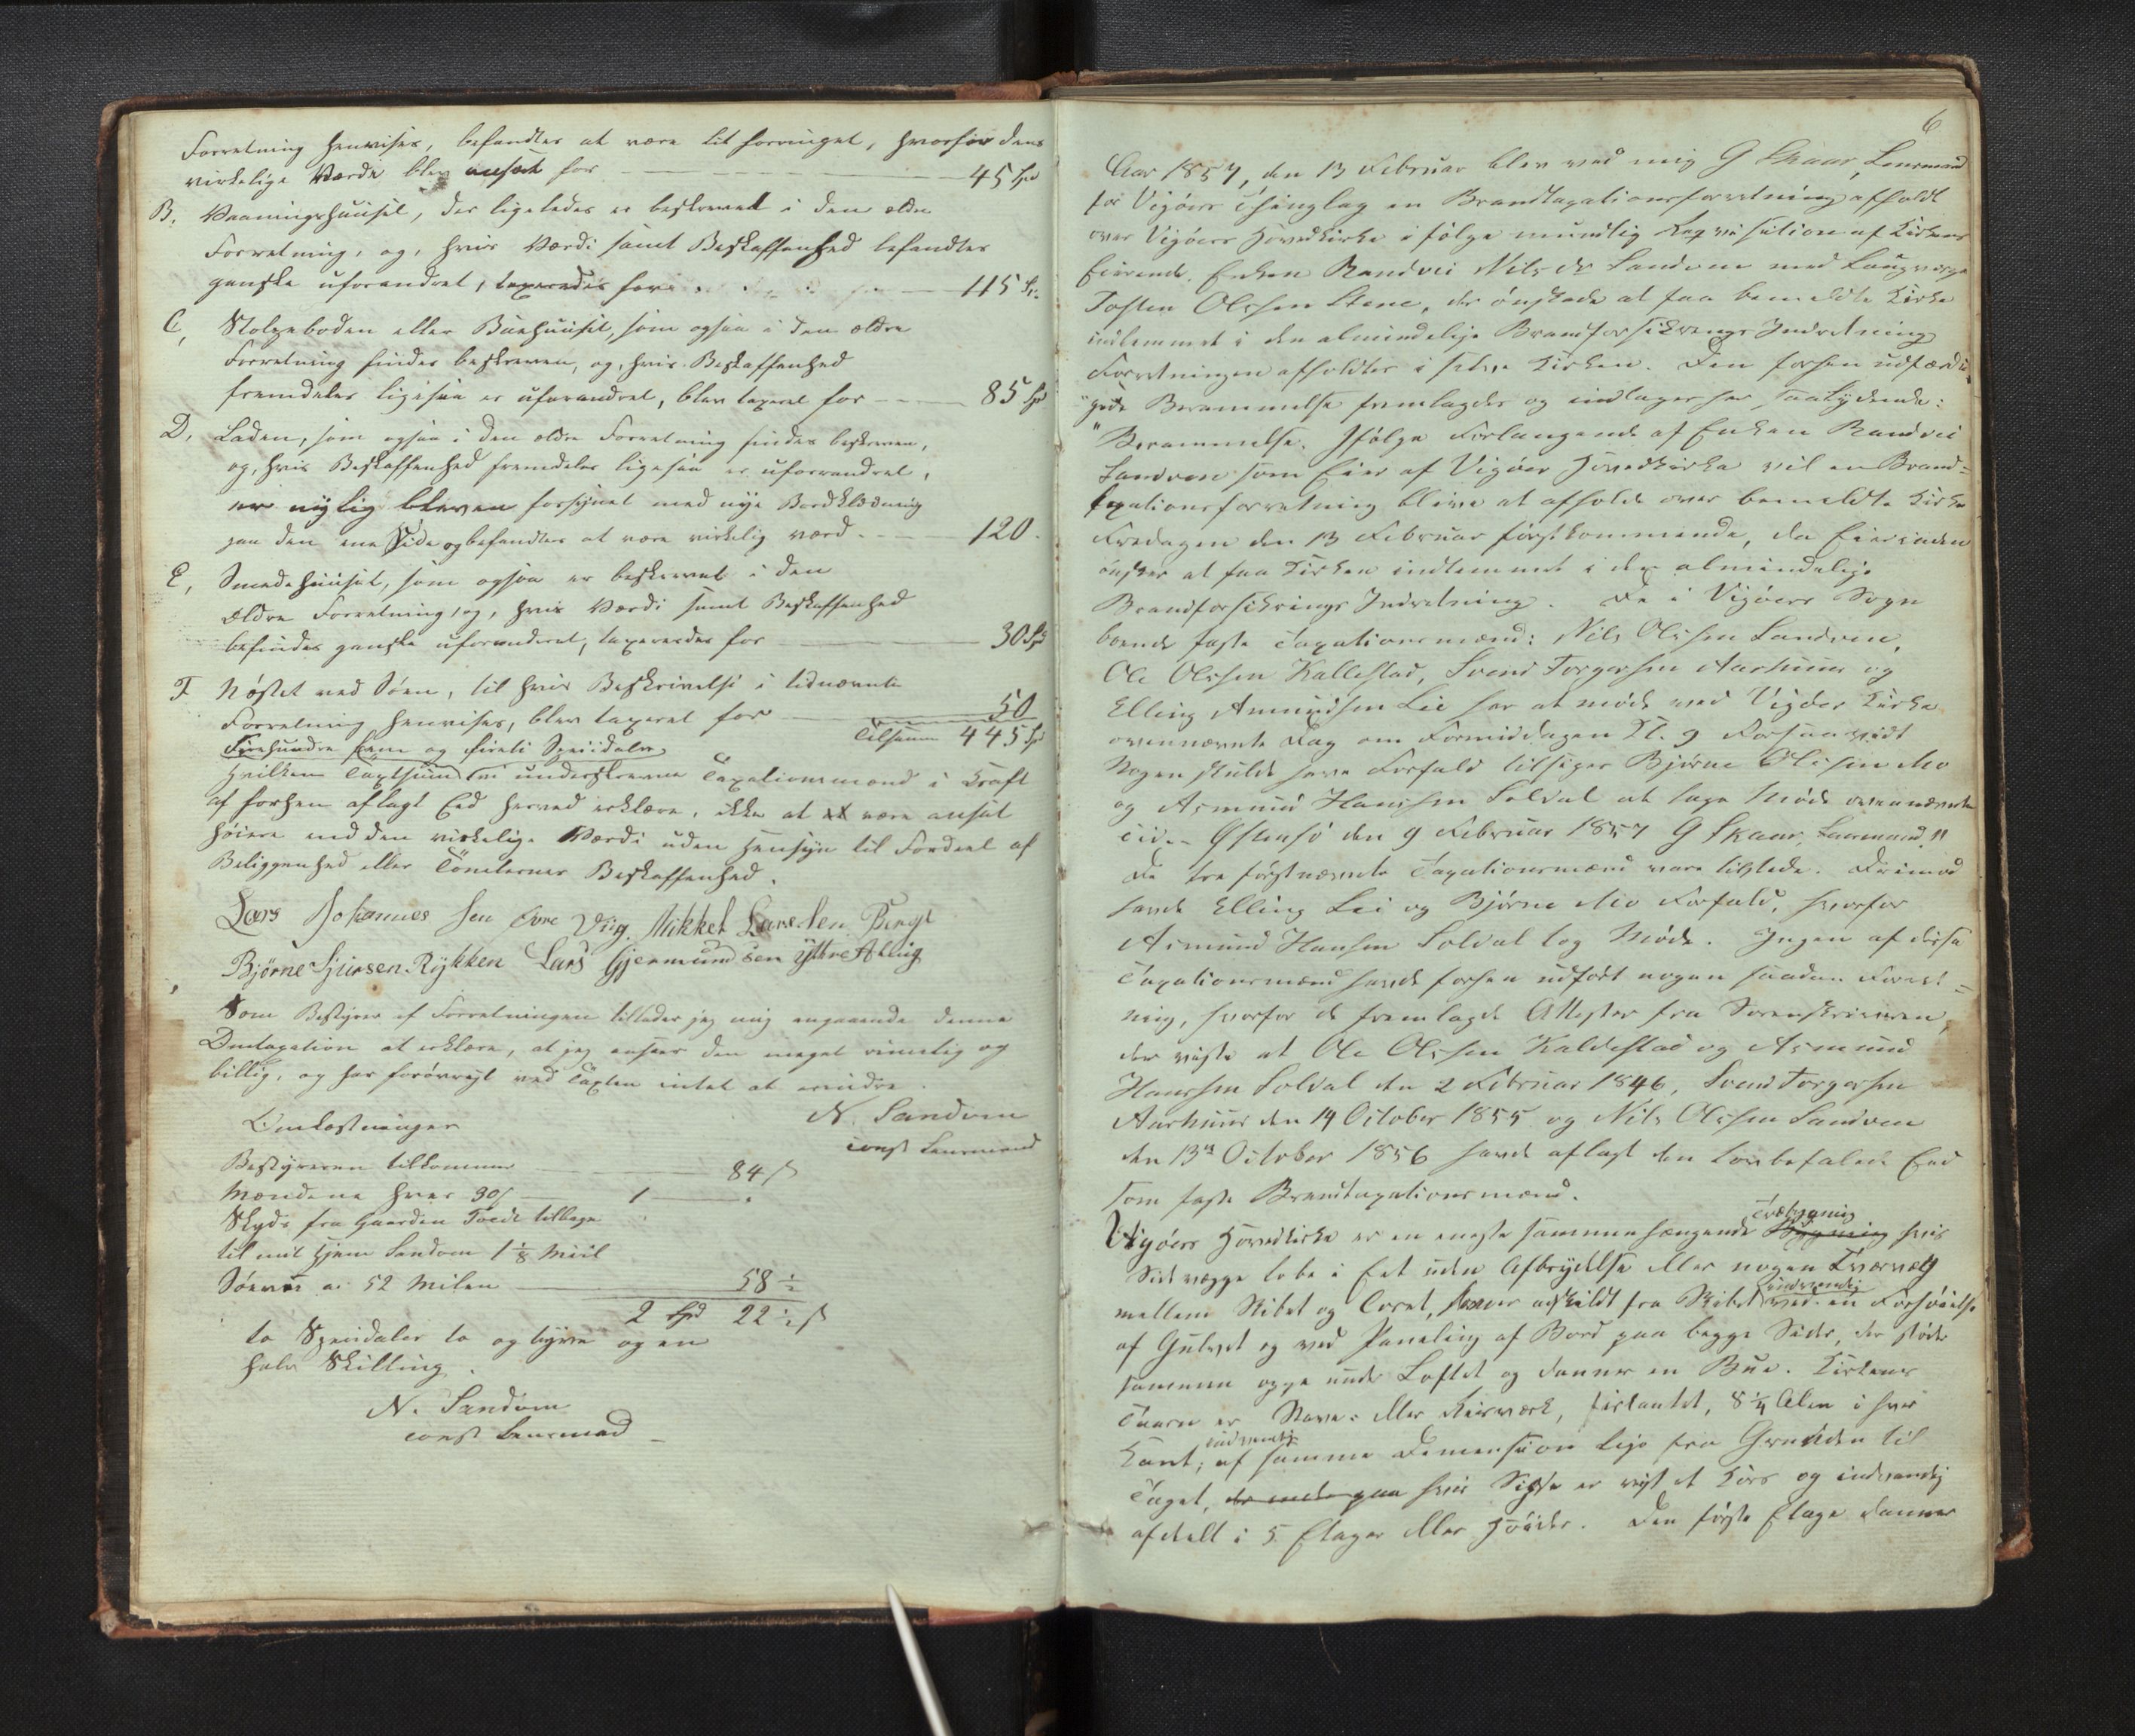 Forretning henvises, befandtes at være lit forringet, hvorfor dens
virkelige Værdi blev ansat for 45 Spd
B. Vaaningshuuset, der ligeledes er beskrevet i den ældre
Forretning, og, hvis Værdi samt Beskaffenhed befandtes
ganske uforandret, taxeredes for 115 Sp.
C, Stolpeboden eller Buehuuset, som ogsaa i den ældre
Forretning findes beskreven, og, hvis Beskaffenhed
fremdeles ligesaa er uforandret, blev taxeret for 85 Spd
D, Laden, som ogsaa i den ældre Forretning findes beskreven,
og, hvis Beskaffenhed fremdeles ligesaa er uforandret,
er nylig bleven forsynet med nye Bordklædning
paa den ene Side og befandtes at være virkelig værd 120.
E, Smedehuuset, som ogsaa er beskrevet i den
ældre Forretning, og, hvis Værdi samt Beskaffenhed
befindes ganske uforanderet, taxeredes for 30 Sp
F Nøstet ved Söen, til hvis Beskrivelse i tidnævnte
Forretning henvises, blev taxeret for 50
Firehundre fem og fireti Speciedaler Tilsamm 445 Sp
Hvilken Taxtsum vi underskrevne Taxationsmænd i Kraft
af forhen aflagt Eed herved erklære, ikke at være ansat
höiere end den virkelige Værdi uden Hensyn til Fordeel af
Beliggenhed eller Tömternes Beskaffenhed.
Lars Johannes sen Övre Vig. Mikkel Larsen Berge
Björne Sjursen Rykken Lars Gjermundsen ytre Aalvig
Som Bestyrer af Forretningen tillader jeg mig angaaende denne
Omtaxation at erklære, at jeg ansees den meget rimelig og
billig, og har forövrigt ved Taxten intet at erindre.
N. Sandven
const Lensmand
Omkostninger
Bestyreren tilkommer 84 ß
Mændene hver 30 ß 1 "
Skyds fra Gaarden tilbage
til mit Hjem Sandven 1 1/8 Miil
Söevei a 52 Milen 58 ½
2 Spd 22 ½ ß
to Speciedaler to og tyve og en
halv Skilling.
N. Sandven
const Lensmand
6
Aar 1857, den 13 Februar blev ved mig G Skaar, Lensmand
for Vigöers Thinglag en Brandtaxationsforretning afholdt
over Vigöers Hovedkirke i fölge mundtlig Reqvisition af Kirkens
Eierinde, Enken Randvei Nilsdr Sandven med Laugværge
Tosten Olsen Stene, der önskede at faa bemeldte Kirke
indlemmet i den almindelige Brandforsikrings Indretning
Forretningen afholdtes i selve Kirken. Den forhen udfærdi
"gede Berammelse fremlagdes og indtages her, saalydende:
"Berammelse. Ifölge Forlangende af Enken Randvei
Sandven som Eier af Vigöer Hovedkirke vil en Brand=
taxationsforretning blive at afholde over bemeldte Kirke
Fredagen den 13 Februar förstkommende, da Eierinden
önsker at faa Kirken indlemmet i den almindelige
Brandforsikrings Indretning. De i Vigöers Sogn
boende faste Taxationsmænd: Nils Olsen Sandven,
Ole Olsen Kallestad, Svend Torgersen Aarhuus og
Elling Amundsen Lie har at möde ved Vigöer Kirke
ovennævnte Dag om Formiddagen Kl. 9 Forsaavidt
Nogen skulde have Forfald tilsiges Björne Olsen Mo
og Asmund Hansen Soldal at tage Möde ovennævnte
Tid. Östensö den 9 Februar 1857 G Skaar, Lensmand."
De tre förstnævnte Taxationsmænd vare tilstede. Derimod
havde Elling Lie og Björne Mo Forfald, hvorfor
Asmund Hansen Soldal tog Möde. Ingen af disse
Taxationsmænd havde forhen udfört nogen saadan Forret=
ning, hvorfor de fremlagde Attester fra Sorenskriveren,
der viste at Ole Olsen Kaldestad og Asmund
Hansen Soldal den 2 Februar 1846, Svend Torgersen
Aarhuus den 14 October 1855 og Nils Olsen Sandven
den 13de October 1856 havde aflagt den lovbefalede Eed
som faste Brandtaxationsmænd.
Vigöers Hovedkirke er en eneste sammenhængende Træbygning Bygning hvis
Sidevægge löbe i Eet uden Afbrydelse eller nogen Tværvæg
mellem Skibet og Coret, adskildt fra Skibet indvendig ved en Forhöielse
af Gulvet og ved Paneling af Bord paa begge Sider, der stöde
sammen oppe under Loftet og danner en Bue. Kirkens
Taarn er Stave- eller Reisværk, firkantet, 8¼ Alen i hver
Kant, indvendig af samme Demension lige fra Grunden til
Taget, hvis Spidse er et Kors og indvendig
afdeelt i 5 Etager eller Höider. Den förste Etage danner